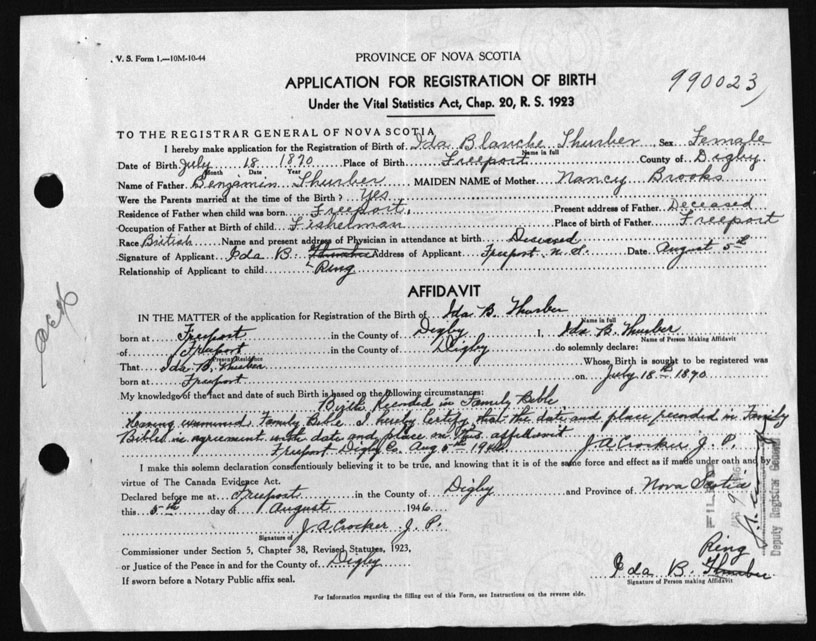 V. S. Form 1.—10M-10-44
PROVINCE OF NOVA SCOTIA
990023
APPLICATION FOR REGISTRATION OF BIRTH
Under the Vital Statistics Act, Chap. 20, R. S. 1923
TO THE REGISTRAR GENERAL OF NOVA SCOTIA
I hereby make application for the Registration of Birth of Ida Blanche Thurber Sex Female
Name in full
Date of Birth July 18 1870 Place of Birth Freeport County of Digby
Month Date Year
Name of Father Benjamin Thurber MAIDEN NAME of Mother Nancy Brooks
Were the Parents married at the time of the Birth? Yes
Residence of Father when child was born Freeport, Present address of Father Deceased
Occupation of Father at Birth of child Fisherman Place of birth of Father Freeport
Race British Name and present address of Physician in attendance at birth Deseased
Signature of Applicant Ida B. Thurber Address of Applicant Freeport N. S. Date August 5th
Relationship of Applicant to child Ring
AFFIDAVIT
IN THE MATTER of the application for Registration of the Birth of Ida B. Thurber
Name in full
born at Freeport in the County of Digby I, Ida B. Thurber
Name of Person Making Affidavit
of Freeport in the County of Digby do solemnly declare:
Present Residence
That Ida B. Thurber Whose Birth is sought to be registered was
born at Freeport on July 18th 1870
My knowledge of the fact and date of such Birth is based on the following circumstances:
Birth Recorded in Family Bible
Having examined Family Bible I hereby certify that the date and place recorded in Family
Bible in agreement with date and place on this affidavit
Freeport Digby Co. Aug 5th 1946 J. A. Crocker J. P.
I make this solemn declaration conscientiously believing it to be true, and knowing that it is of the same force and effect as if made under oath and by
virtue of The Canada Evidence Act.
Declared before me at Freeport in the County of Digby and Province of Nova Scotia
this 5th day of August 1946
J. A. Crocker J. P.
Signature of
Commissioner under Section 5, Chapter 38, Revised Statutes, 1923,
or Justice of the Peace in and for the County of Digby
If sworn before a Notary Public affix seal.
Ring
Ida B. Thurber
Signature of Person making Affidavit
Deputy Registrar General
For Information regarding the filling out of this Form, see Instructions on the reverse side.